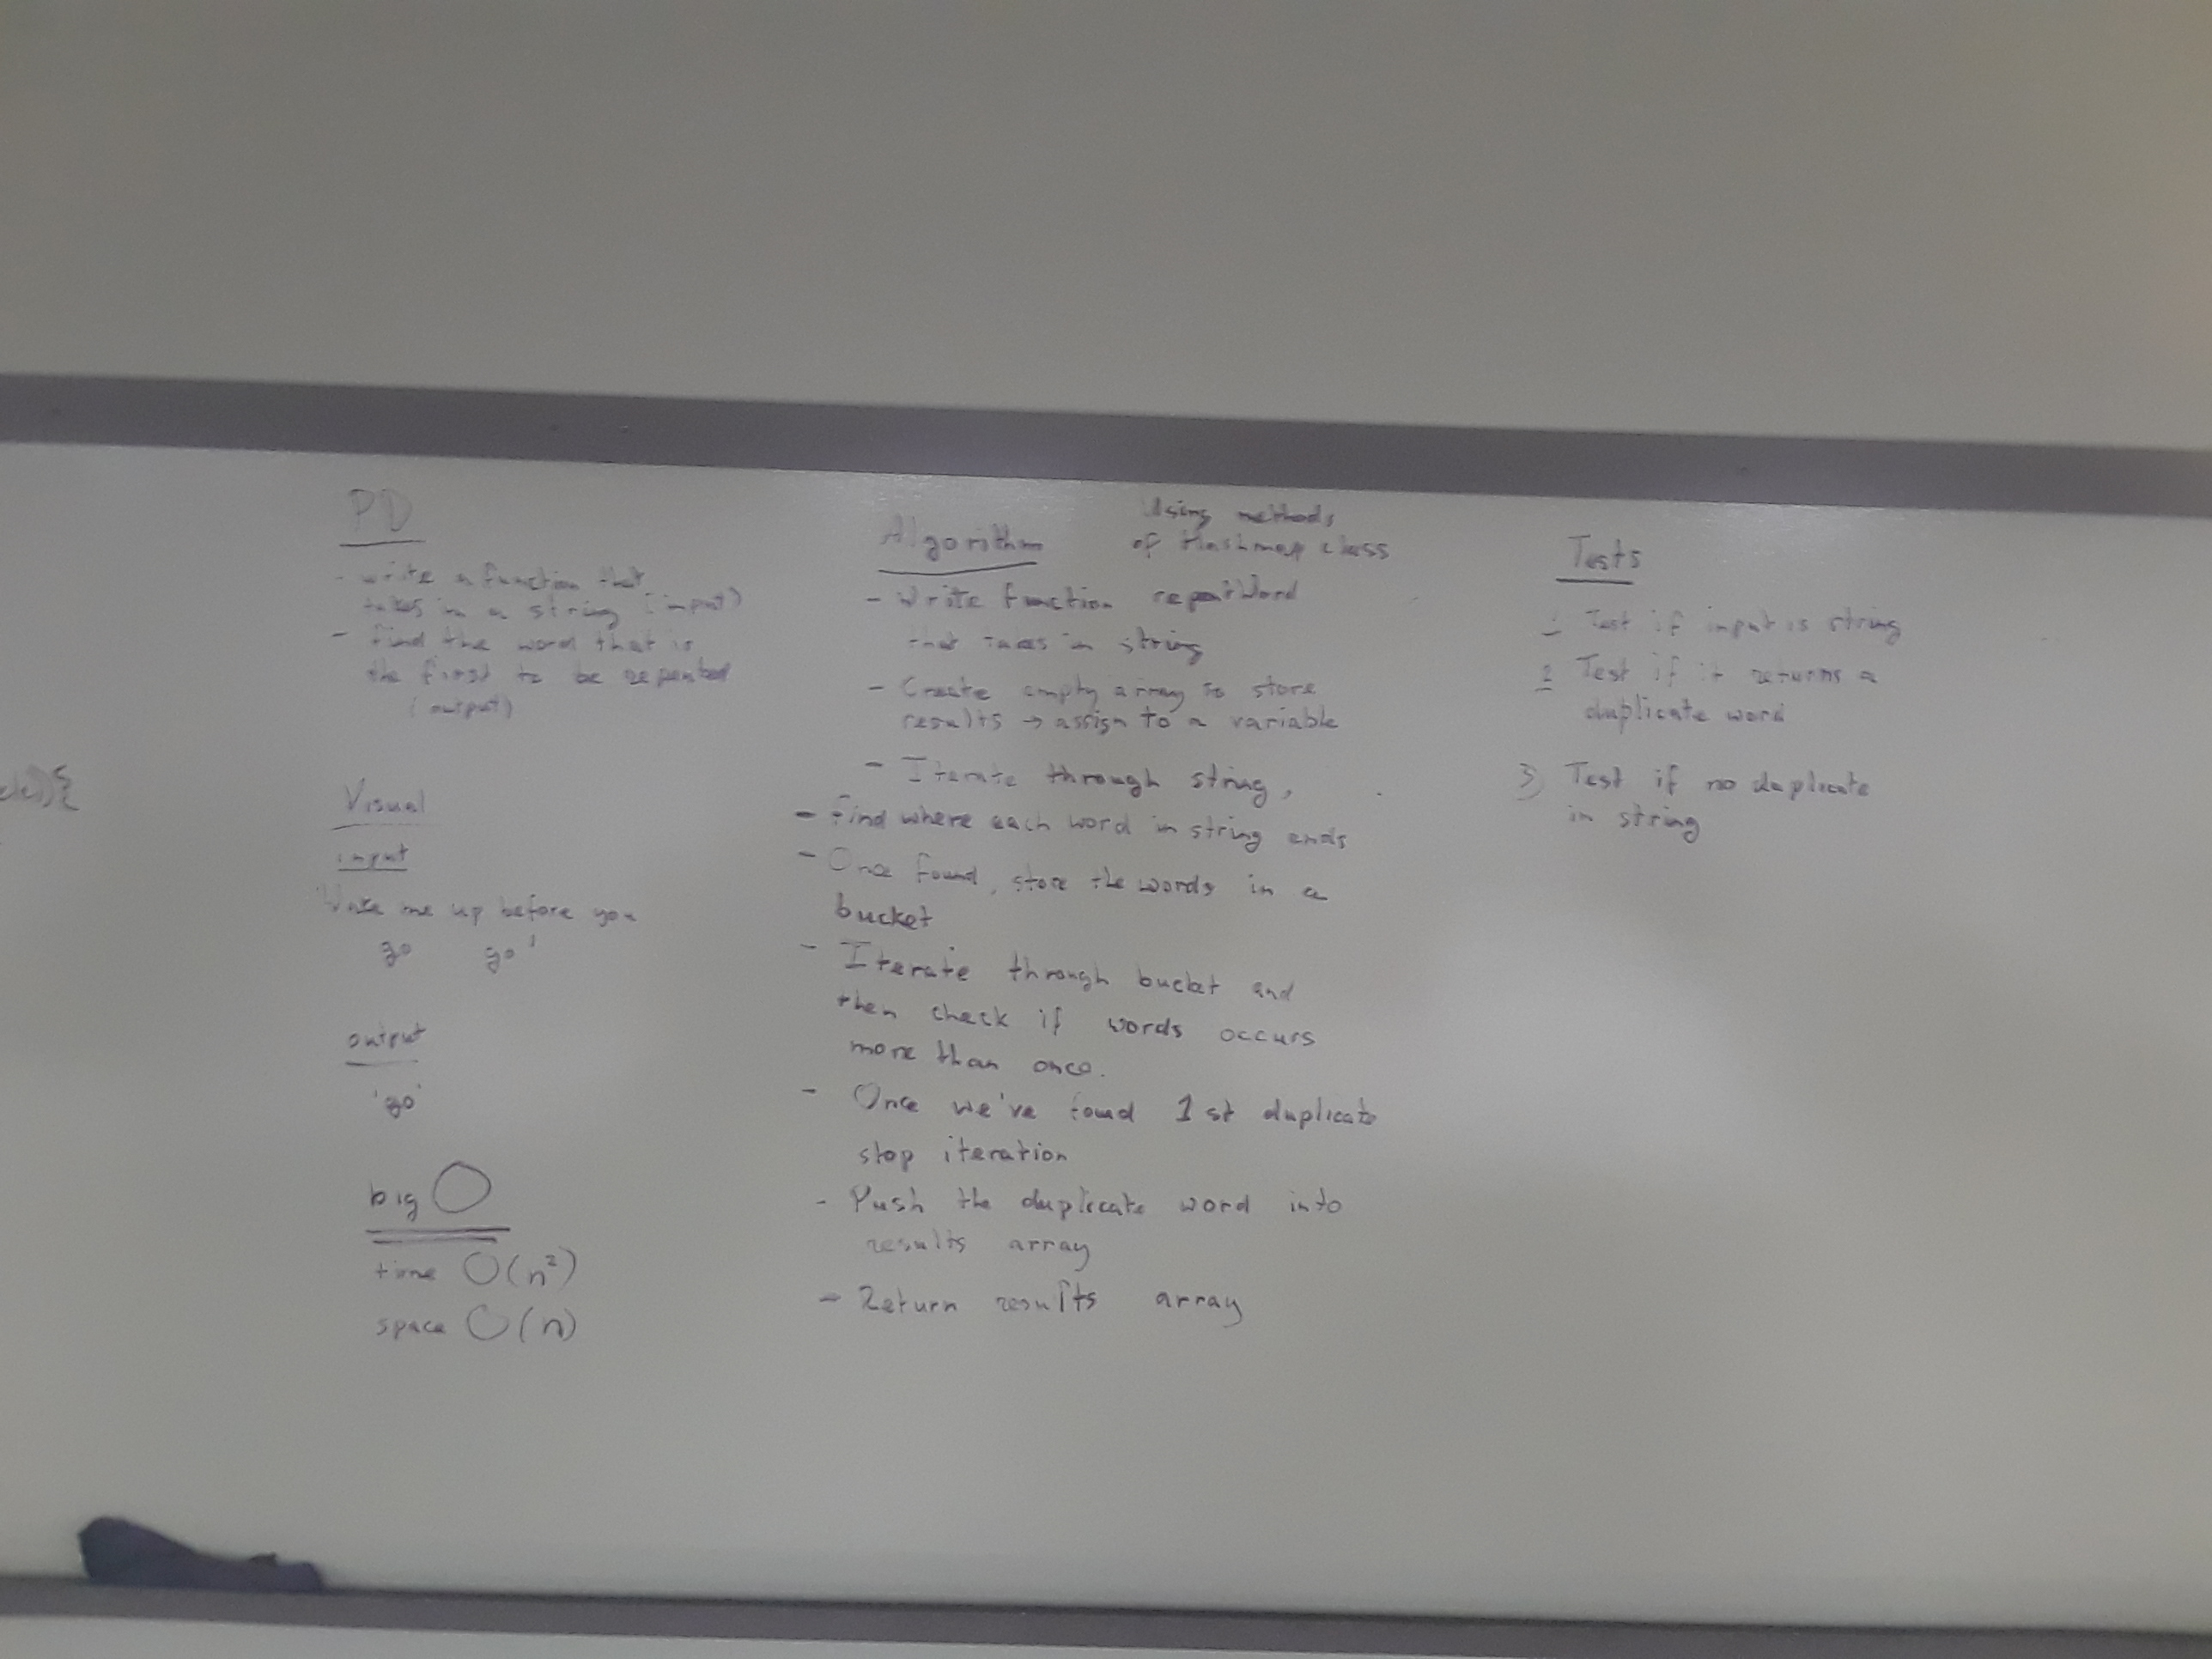 PD
- write a function that
takes in a string (input)
- find the word that is
the first to be repeated
(output)
Visual
input
'Wake me up before you
go go'
output
'go'
big O
time O(n²)
space O(n)
Algorithm
Using methods
of Hashmap class
- Write function repeatWord
that takes in string
- Create empty array to store
results → assign to a variable
- Iterate through string,
- find where each word in string ends
- Once found, store the words in a
bucket
- Iterate through bucket and
then check if words occurs
more than once.
- Once we've found 1st duplicate
stop iteration
- Push the duplicate word into
results array
- Return results array
Tests
1 Test if input is string
2 Test if it returns a
duplicate word
3) Test if no duplicate
in string